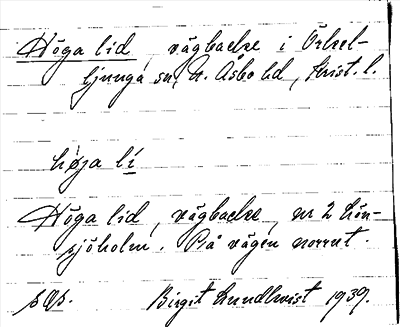 Höga lid, vägbacke i Örkel-
ljunga sn, N. Åsbo hd, Krist. l.
høja lí
Höga lid, vägbacke, nr 2 Lön-
sjöholm. På vägen norrut.
Birgit Lundkvist 1939.